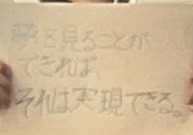 夢を見ることが
できれば、
それは実現できる。